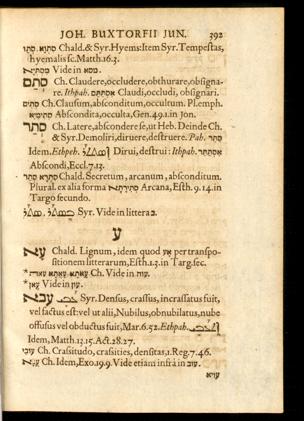 JOH. BUXTORFII JUN. 392
סתוא, סתו Chald. & Syr. Hyems: Item Syr. Tempestas,
hyemalis sc. Matth. 16. 3.
Vide in מסא.
סתם Ch. Claudere, occludere, obthurare, obsigna-
re. Ithpah. Claudi, occludi, obsignari.
סתים Ch. Clausum, absconditum, occultum. Pl. emph.
Abscondita, occulta, Gen. 49. 1. in Jon.
סתר Ch. Latere, abscondere se, ut Heb. Deinde Ch.
& Syr. Demoliri, diruere, destruere. Pah. סתר
Idem. Ethpeh. Dirui, destrui: Ithpah. אסתתר
Abscondi, Eccl. 7. 13.
סתרא, סתר Chald. Secretum, arcanum, absconditum.
Plural. ex alia forma Arcana, Esth. 9. 14. in
Targ. secundo.
Syr. Vide in littera ב.
ע
עא Chald. Lignum, idem quod עץ per transpo-
sitionem litterarum, Esth. 1. 3. in Targ. sec.
* Ch. Vide in עוה.
* עאן Vide in עין.
עבא Syr. Densus, crassus, incrassatus fuit,
vel factus est: vel ut alii, Nubilus, obnubilatus, nube
offusus vel obductus fuit, Mar. 6. 52. Ethpah.
Idem, Matth. 13. 15. Act. 28. 27.
עבי Ch. Crassitudo, crassities, densitas, 1. Reg. 7. 46.
Ch. Idem, Exo. 19. 9. Vide etiam infrà in עוב.